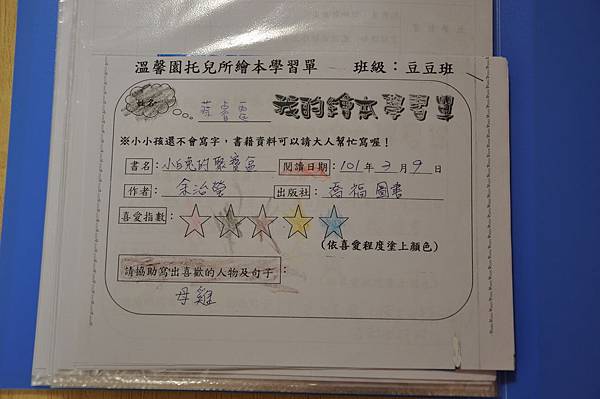 溫馨園托兒所繪本學習單 班級：豆豆班
姓名 蔡睿恩 我的繪本學習單
※小小孩還不會寫字，書籍資料可以請大人幫忙寫喔！
書名：小白兔的聚寶盆 閱讀日期：101年3月9日
作者：余治瑩 出版社：喬福圖書
喜愛指數：
(依喜愛程度塗上顏色)
請協助寫出喜歡的人物及句子：
母雞